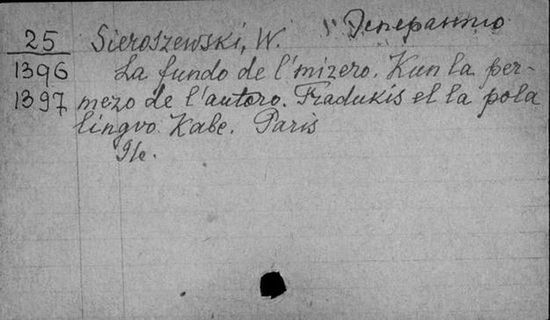 Эсперанто
25 Sieroszewski, W.
1396 La fundo de l'mizero. Kun la per-
1397 mezo de l'autoro. Tradukis el la pola
lingvo Kabe. Paris